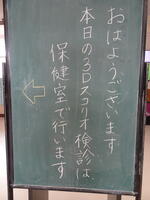 おはようございます
本日の3Dスコリオ検診は
保健室で行います